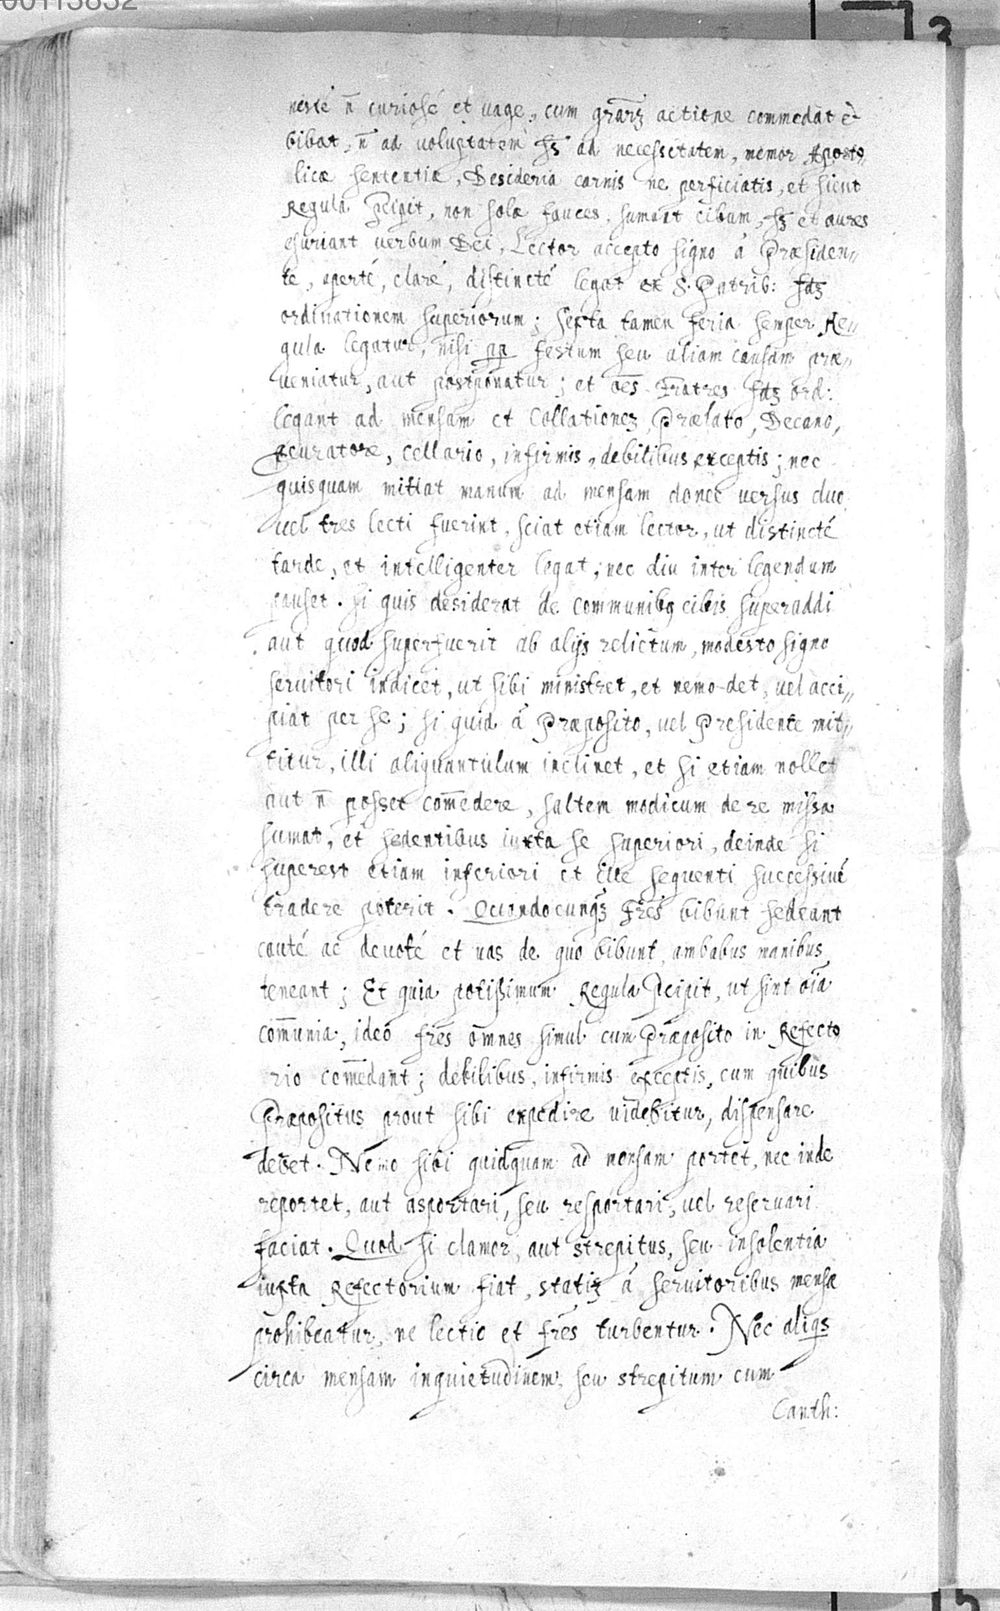 00113832
3
neste n̄ curiosé et uage, cum grarꝫ actione commedat et
bibat, n̄ ad uoluptatem sꝫ ad necessitatem, memor Aposto„
licæ sententiæ, Desideria carnis ne perficiatis, et sicut
Regula p̄cipit, non solæ fauces sumant cibum, sꝫ et aures
esuriant uerbum Dei, Lector accepto signo á Præsiden„
te, aperté, claré, distincté legat ex S. Patrib: sꝫ
ordinationem superiorum; sexta tamen feria semper Re„
gula legatur, nisi pp festum seu aliam causam præ„
ueniatur, aut postponatur; et oēs Fratres sꝫ ord:
legant ad mensam et Collationeꝫ Prælato, Decano,
ꝓcuratore, cellario, infirmis, debilibus exceptis; nec
quisquam mittat manum ad mensam donec uersus duo
uel tres lecti fuerint, sciat etiam lector, ut distincté
tarde, et intelligenter legat, nec diu inter legendum
pauset. Si quis desiderat de communibꝫ cibis superaddi
aut quod superfuerit ab alijs relictum, modesto signo
seruitori indicet, ut sibi ministret, et nemo det, uel acci„
piat per se; si quid á Præposito, uel Presidente mit„
titur, illi aliquantulum inclinet, et si etiam nollet
aut n̄ posset com̄edere, saltem modicum de re missa
sumat, et sedentibus iuxta se superiori, deinde si
superest etiam inferiori et ille sequenti successiué
tradere poterit. Quandocunqꝫ frēs bibunt sedeant
cauté ac deuoté et uas de quo bibunt, ambabus manibus
teneant; Et quia potissimum Regula p̄cipit, ut sint oīa
com̄unia, ideó frēs om̄nes simul cum Præposito in Refecto
rio com̄edant; debilibus, infirmis exceptis, cum quibus
Præpositus prout sibi expedire uidebitur, dispensare
debet. Nemo sibi quidquam ad mensam portet, nec inde
reportet, aut asportari, seu resportari, uel reseruari
faciat. Quod si clamor, aut strepitus, seu insolentia
iuxta Refectorium fiat, statiꝫ á seruitoribus mensæ
prohibeatur, ne lectio et frēs turbentur. Nec aliqs
circa mensam inquietudinem, seu strepitum cum
Canth: